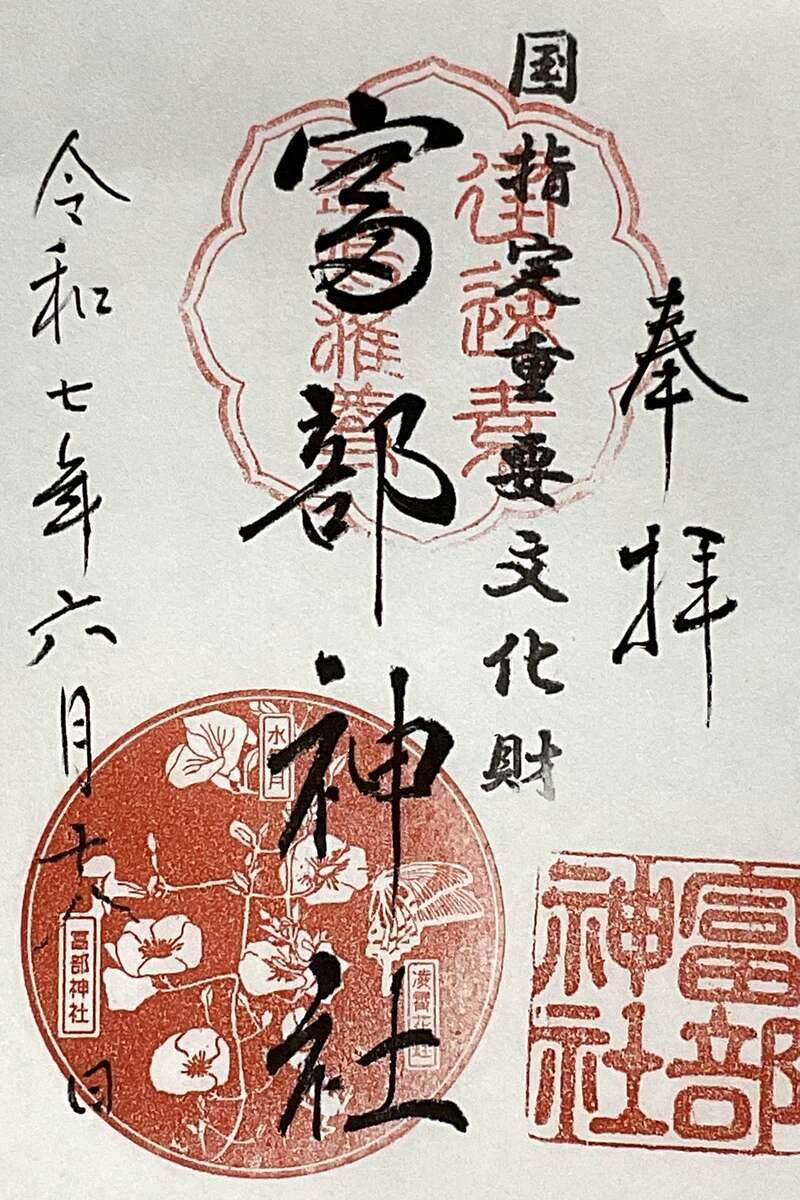 奉拝
国指定重要文化財
富部神社
令和七年六月十八日
富部神社
水無月
凌霄花
冨部神社